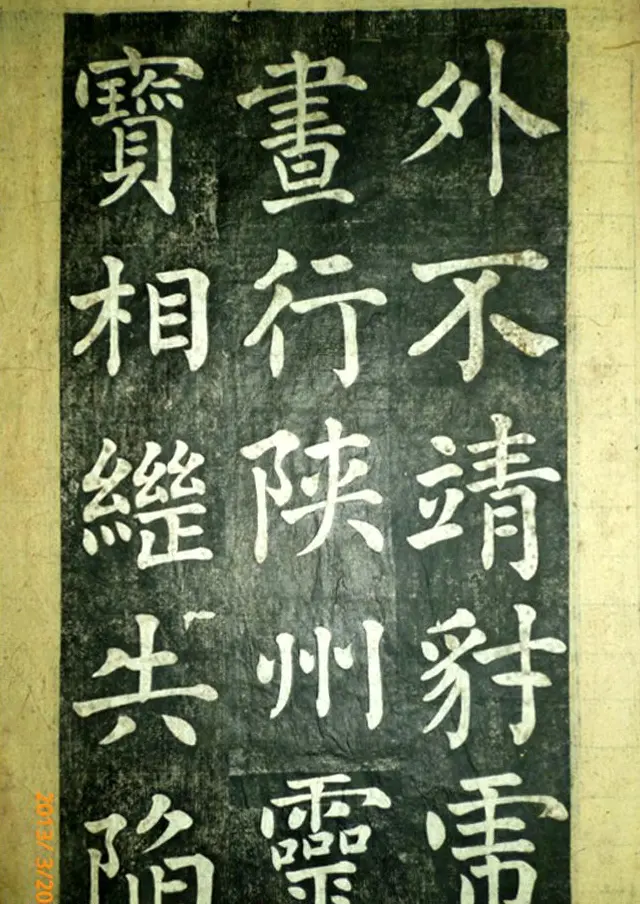 外不靖豺虎
晝行陝州靈
寶相繼失陷
2013/3/20